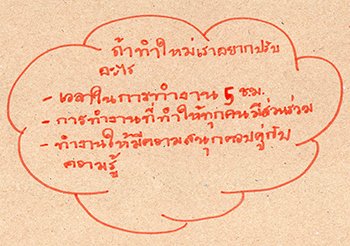 ถ้าทำใหม่เราอยากปรับ
อะไร
- เวลาในการทำงาน 5 ช.ม.
- การทำงานที่ทำให้ทุกคนมีส่วนร่วม
- ทำงานให้มีความสนุกควบคู่กับ
ความรู้